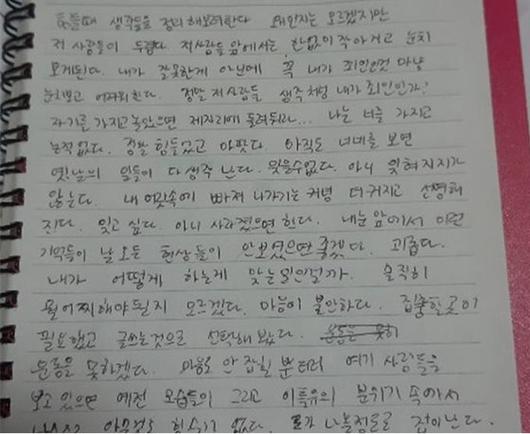 힘들때 생각들을 정리해보려한다 왜인지는 모르겠지만
저 사람들이 두렵다. 저사람들 앞에서는, 한없이 작아지고 눈치
보게된다. 내가 잘못한게 아닌데 꼭 내가 죄인인것 마냥
눈치보고 한다. 정말 저 사람들 생각처럼 내가 죄인인가?
자기를 가지고 놀았으면 제자리에 돌려둬라... 나는 너를 가지고
논적없다. 정말 힘들었고 아팠다. 아직도 너네를 보면
옛날의 일들이 다 생각 난다. 잊을수없다. 아니 잊혀지지가
않는다. 내 머릿속에 빠져 나가기는 커녕 더 커지고 선명해
진다. 잊고 싶다. 아니 사라졌으면 한다. 내눈 앞에서 이런
기억들이 날 모든 현상들이 안보였으면 좋겠다. 괴롭다.
내가 어떻게 하는게 맞는 일인걸까. 솔직히
뭘 어찌해야될지 모르겠다. 마음이 불안하다. 집중할곳이
필요했고 글쓰는것으로 선택해봤다. 운동은 못하
운동을 못하겠다. 마음도 안 잡힐 뿐더러 여기 사람들을
보고 있으면 예전 모습들이 그리고 이특유의 분위기 속에서
아무것도 할수가 없다. 겁이난다.